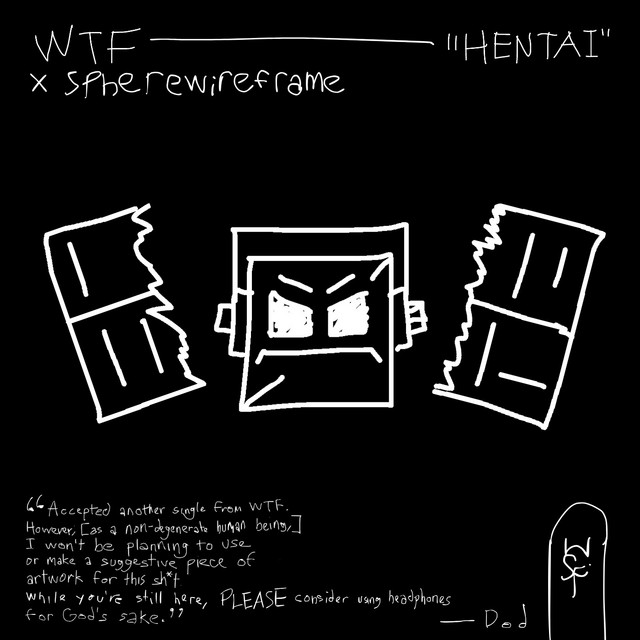 WTF — "HENTAI"
x spherewireframe
"Accepted another single from WTF.
However, [as a non-degenerate human being,]
I won't be planning to use
or make a suggestive piece of
artwork for this sh*t
While you're still here, PLEASE consider using headphones
for God's sake."
— Dod